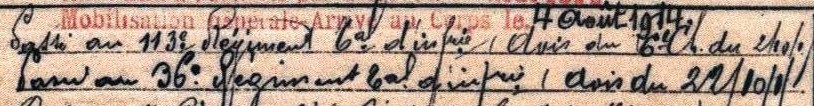 Mobilisation Générale-Arrivé au Corps le 4 Août 1914.
Passé au 113e Régiment tal d'infrie (Avis du
Passé au 36e Régiment tal d'infrie (Avis du 22/10/1